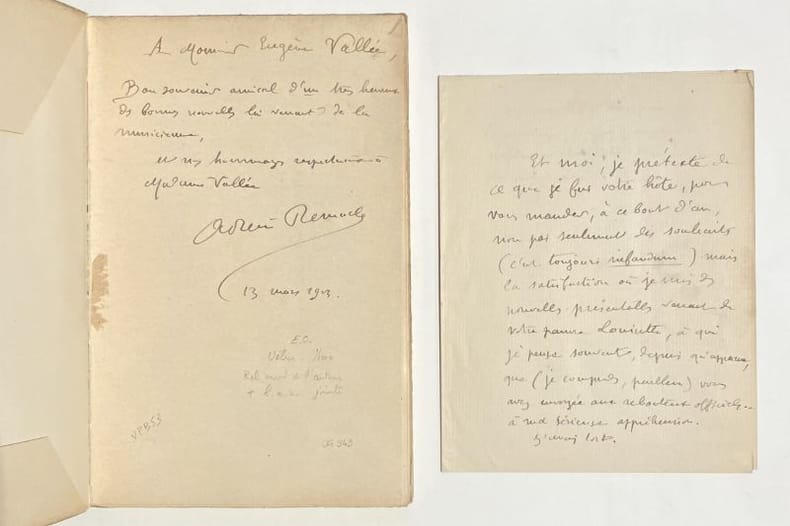 A Monsieur Eugène Vallée,
Bon souvenir amical d'un très heureux
de bonnes nouvelles lui venant de la
musicienne,
et mes hommages respectueux à
Madame Vallée
Adrien Remacle
13 mars 1903.
E.O.
Vélin
Rel. envoi de l'auteur
+ l.a.s. jointe
VPB53
Et moi, je prétexte de
ce que je fus votre hôte, pour
vous mander, à ce bout d'an,
non pas seulement des souhaits
(c'est toujours infandum) mais
la satisfaction où je suis des
nouvelles présentables venant de
votre pauvre Louisette, à qui
je pense souvent, depuis
que (je comprends, parbleu) vous
avez envoyée aux rebouteux officiels..
à ma sérieuse appréhension.
J'avais tort.